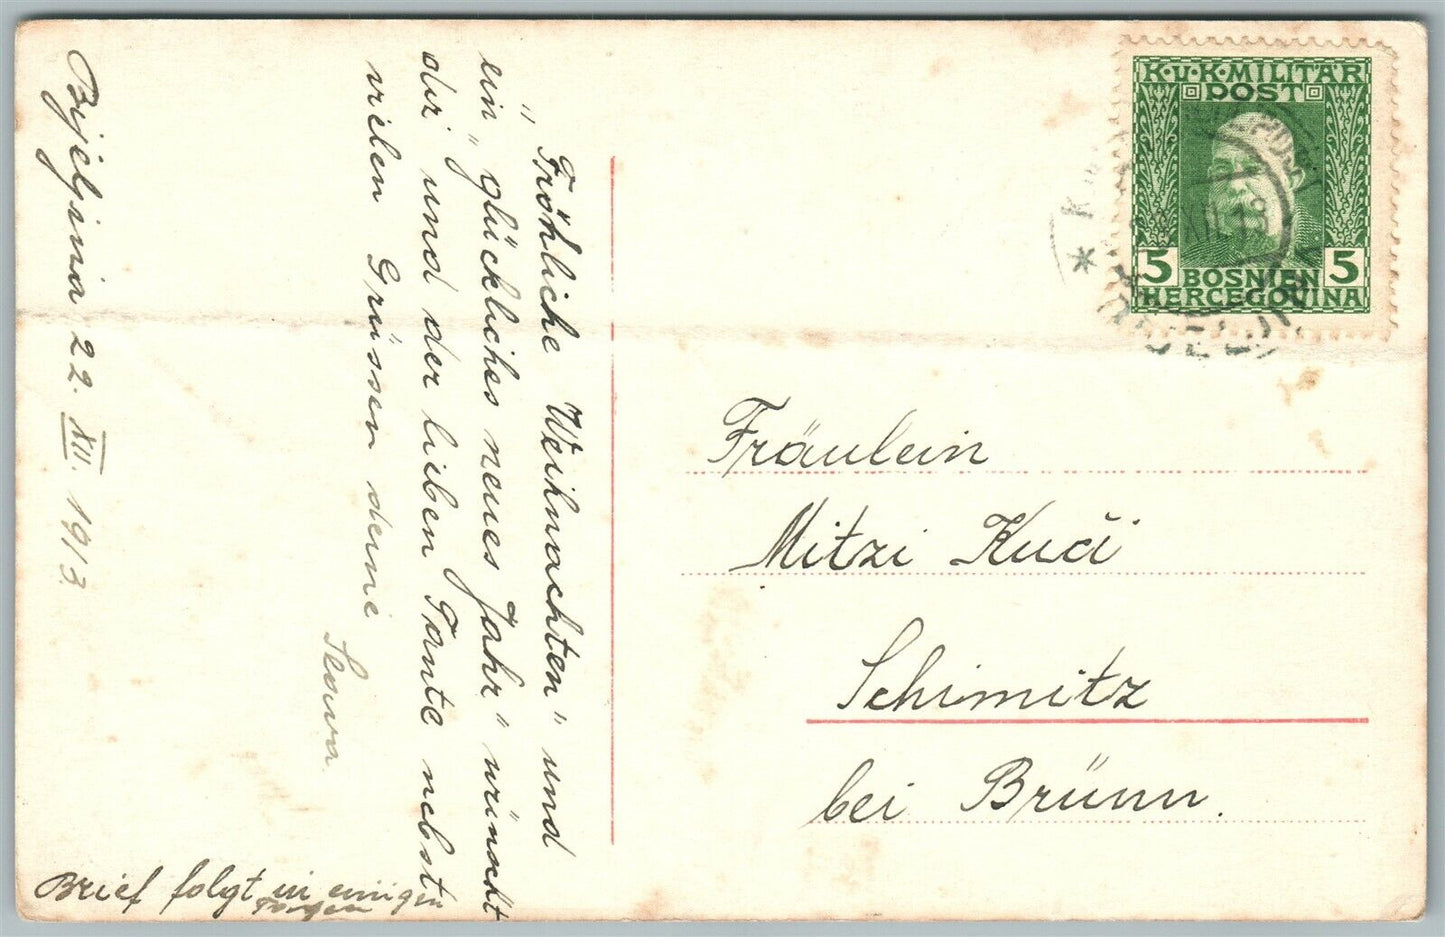 "Fröhliche Weihnachten" und
ein "glückliches neues Jahr" wünscht
dir und der lieben Tante nebst
vielen Grüssen deine
Bijeljina 22. XII. 1913
Brief folgt in einigen
Tagen
K.u.K. MILITÄR
POST
5 BOSNIEN 5
HERCEGOVINA
XII. 13
Fräulein
Mitzi Kučí
Schimitz
bei Brünn.